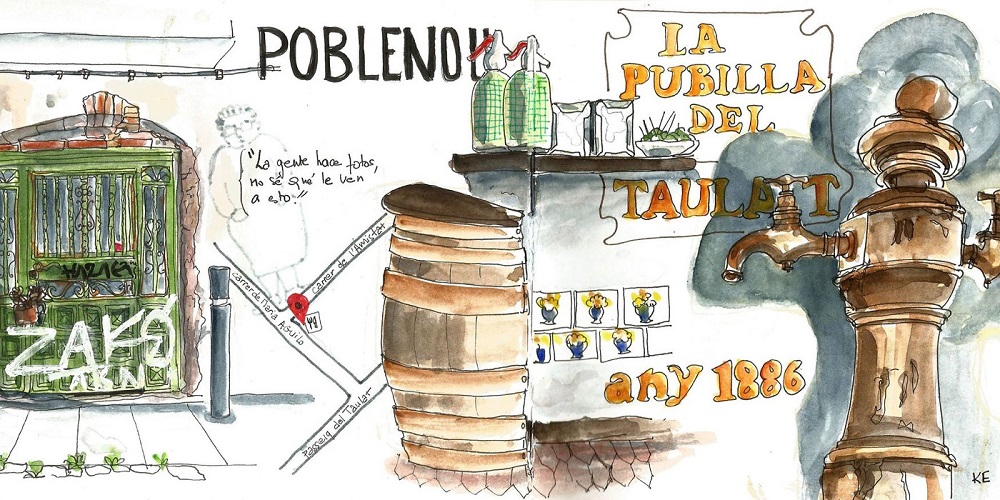 POBLENOU
"La gente hace fotos,
no sé qué le ven
a esto."
carrer de l'Amistat
carrer de Maria Aguiló
Passeig del Taulat
ZAKÉ
LA
PUBILLA
DEL
TAULAT
any 1886
KE